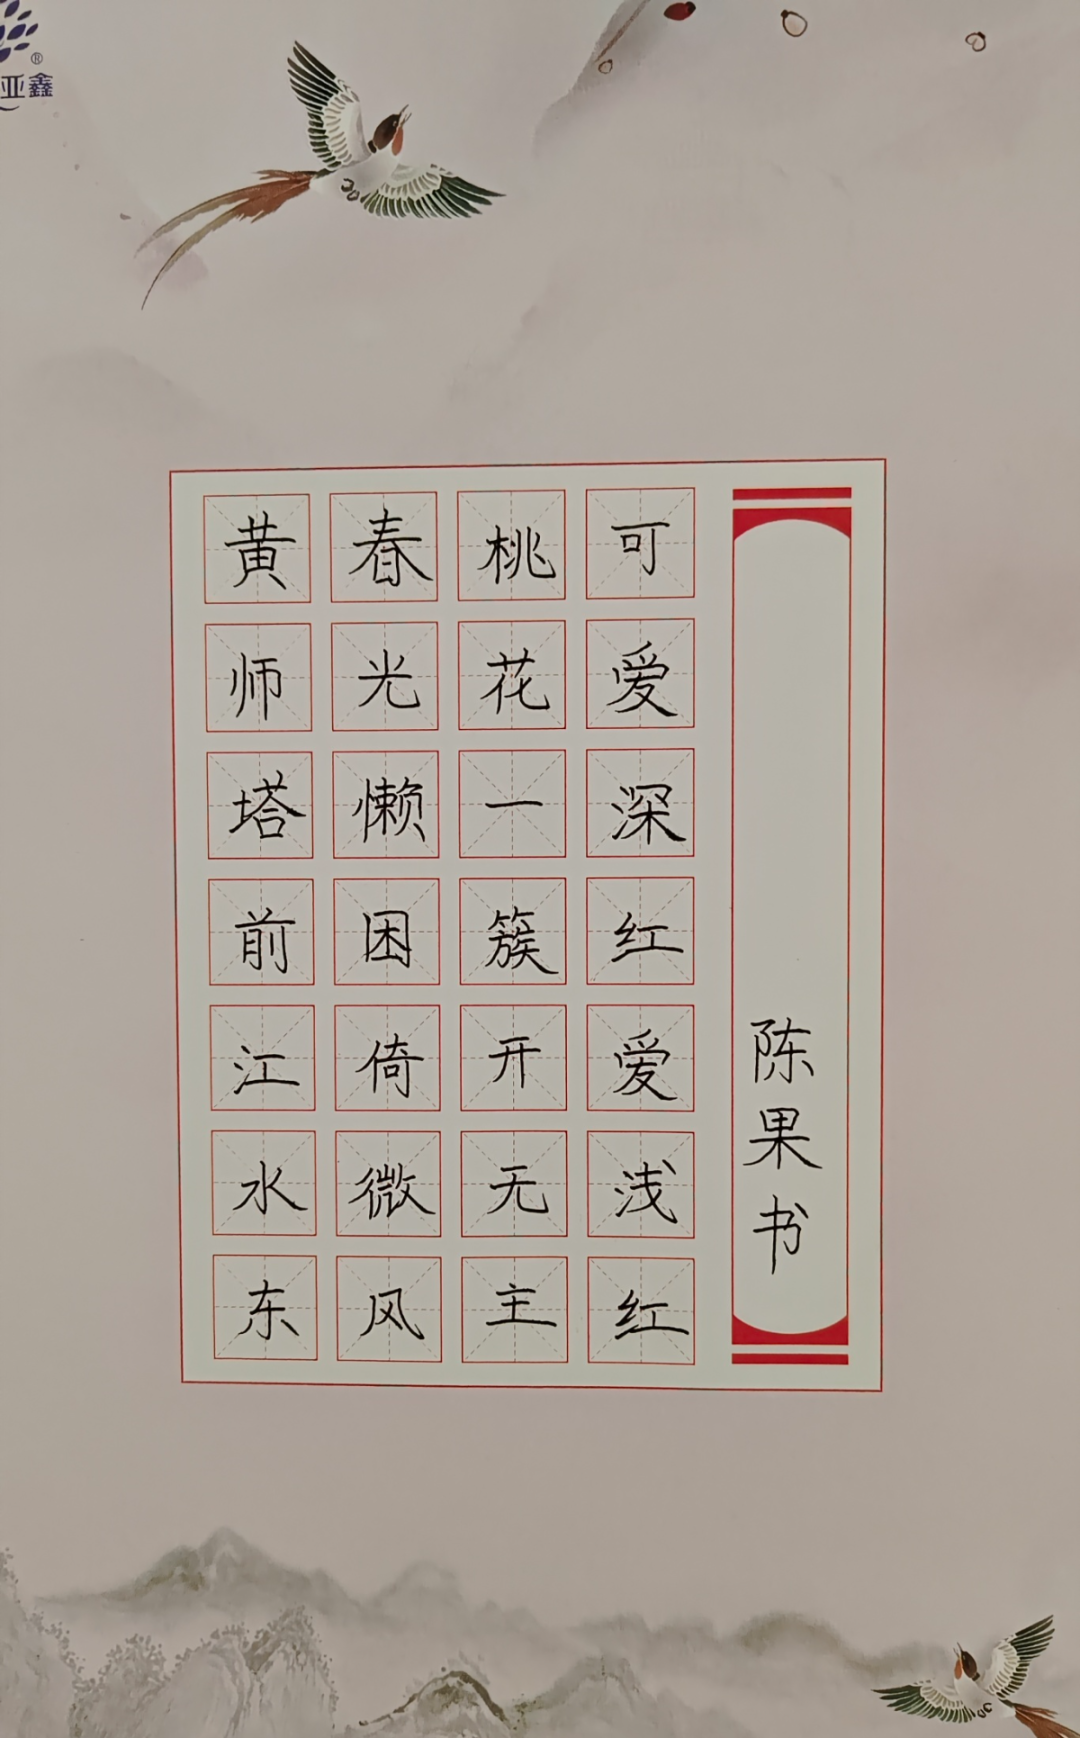 亚鑫
®
黄师塔前江水东
春光懒困倚微风
桃花一簇开无主
可爱深红爱浅红
陈果书